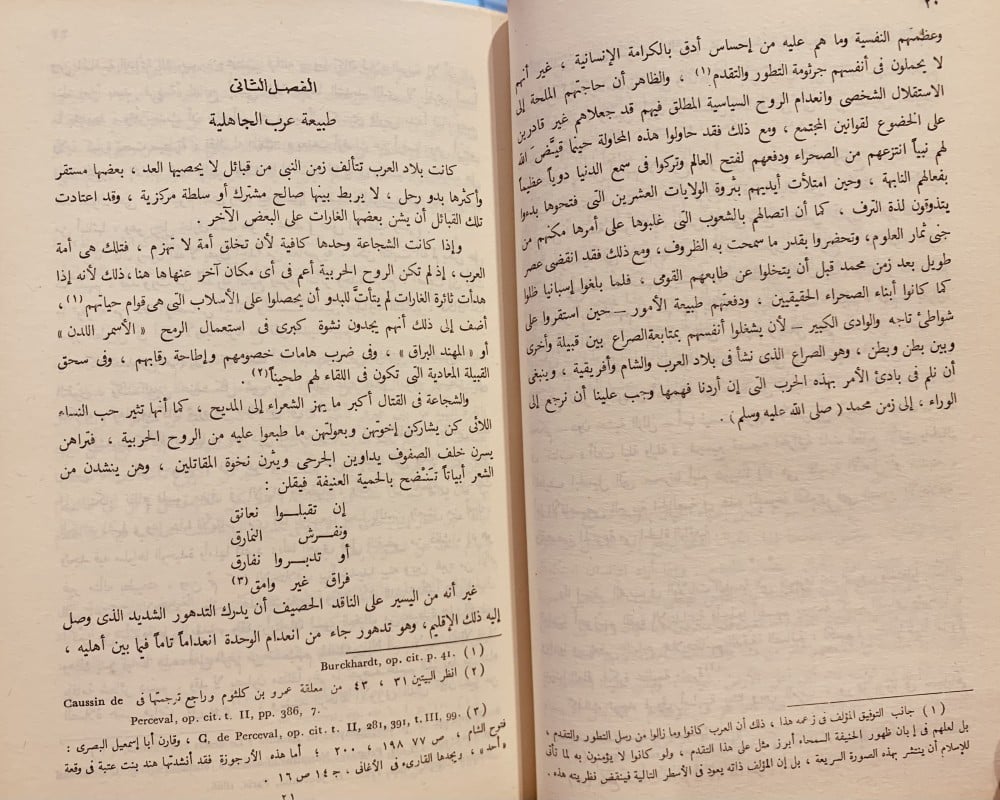 ٢٠
وعظمتهم النفسية وما هم عليه من إحساس أدق بالكرامة الإنسانية ، غير أنهم
لا يحملون فى أنفسهم جرثومة التطور والتقدم(١) ، والظاهر أن حاجتهم الملحة إلى
الاستقلال الشخصى وانعدام الروح السياسية المطلق فيهم قد جعلاهم غير قادرين
على الخضوع لقوانين المجتمع ، ومع ذلك فقد حاولوا هذه المحاولة حينما قيَّض الله
لهم نبياً انتزعهم من الصحراء ودفعهم لفتح العالم وتركوا فى سمع الدنيا دوياً عظيماً
بفعالهم النابهة ، وحين امتلأت أيديهم بثروة الولايات العشرين التى فتحوها بدءوا
يتذوقون لذة الترف ، كما أن اتصالهم بالشعوب التى غلبوها على أمرها مكنهم من
جنى ثمار العلوم، وتحضروا بقدر ما سمحت به الظروف، ومع ذلك فقد انقضى عصر
طويل بعد زمن محمد قبل أن يتخلوا عن طابعهم القومى ، فلما بلغوا إسبانيا ظلوا
كما كانوا أبناء الصحراء الحقيقيين ، ودفعتهم طبيعة الأمور – حين استقروا على
شواطئ تاجه والوادى الكبير – لأن يشغلوا أنفسهم بمتابعة الصراع بين قبيلة وأخرى
وبين بطن وبطن ، وهو الصراع الذى نشأ فى بلاد العرب والشام وأفريقية ، وينبغى
أن نلم فى بادئ الأمر بهذه الحرب التى إن أردنا فهمها وجب علينا أن نرجع إلى
الوراء ، إلى زمن محمد ( صلى الله عليه وسلم ) .
(١) جانب التوفيق المؤلف فى زعمه هذا ، ذلك أن العرب كانوا وما زالوا من رسل التطور والتقدم ،
بل لعلهم فى إبان ظهور الحنيفة السمحاء أبرز مثل على هذا التقدم ، ولو كانوا لا يؤمنون به لما تأتى
للإسلام أن ينتشر بهذه الصورة السريعة ، بل إن المؤلف ذاته يعود فى الأسطر التالية فينقض نظريته هذه .
الفصل الثانى
طبيعة عرب الجاهلية
كانت بلاد العرب تتألف زمن النبى من قبائل لا يحصيها العد ، بعضها مستقر
وأكثرها بدو رحل ، لا يربط بينها صالح مشترك أو سلطة مركزية ، وقد اعتادت
تلك القبائل أن يشن بعضها الغارات على البعض الآخر .
وإذا كانت الشجاعة وحدها كافية لأن تخلق أمة لا تهزم ، فتلك هى أمة
العرب ، إذ لم تكن الروح الحربية أعم فى أى مكان آخر عنها ها هنا، ذلك لأنه إذا
هدأت ثائرة الغارات لم يتأتَّ للبدو أن يحصلوا على الأسلاب التى هى قوام حياتهم(١) ،
أضف إلى ذلك أنهم يجدون نشوة كبرى فى استعمال الرمح « الأسمر اللدن »
أو « المهند البراق » ، وفى ضرب هامات خصومهم وإطاحة رقابهم ، وفى سحق
القبيلة المعادية التى تكون فى اللقاء لهم طحيناً(٢) .
والشجاعة فى القتال أكبر ما يهز الشعراء إلى المديح ، كما أنها تثير حب النساء
اللائى كن يشاركن إخوتهن وبعولتهن ما طبعوا عليه من الروح الحربية ، فتراهن
يسرن خلف الصفوف يداوين الجرحى ويثرن نخوة المقاتلين ، وهن ينشدن من
الشعر أبياتاً تَنْضح بالحمية العنيفة فيقلن :
إن تقبلـــوا نعانق
ونفــرش النمارق
أو تدبــروا نفارق
فراق غير وامق(٣)
غير أنه من اليسير على الناقد الحصيف أن يدرك التدهور الشديد الذى وصل
إليه ذلك الإقليم ، وهو تدهور جاء من انعدام الوحدة انعداماً تاماً فيما بين أهليه ،
(١) Burckhardt, op. cit. p. 41.
(٢) انظر البيتين ٣١ ، ٤٣ من معلقة عمرو بن كلثوم وراجع ترجمتها فى Caussin de
Perceval, op. cit. t. II, pp. 386, 7.
(٣) G. de Perceval, op. cit. t. II, 281, 391, t. III, 99. ، وقارن أبا إسمعيل البصرى :
فتوح الشام ، ص ٧٧ ، ١٩٨ ، ٢٠٠ ؛ أما هذه الأرجوزة فقد أنشدتها هند بنت عتبة فى وقعة
«أحد» ، ويجدها القارىء فى الأغانى ، جـ ١٤ ص ١٦ .
٢١